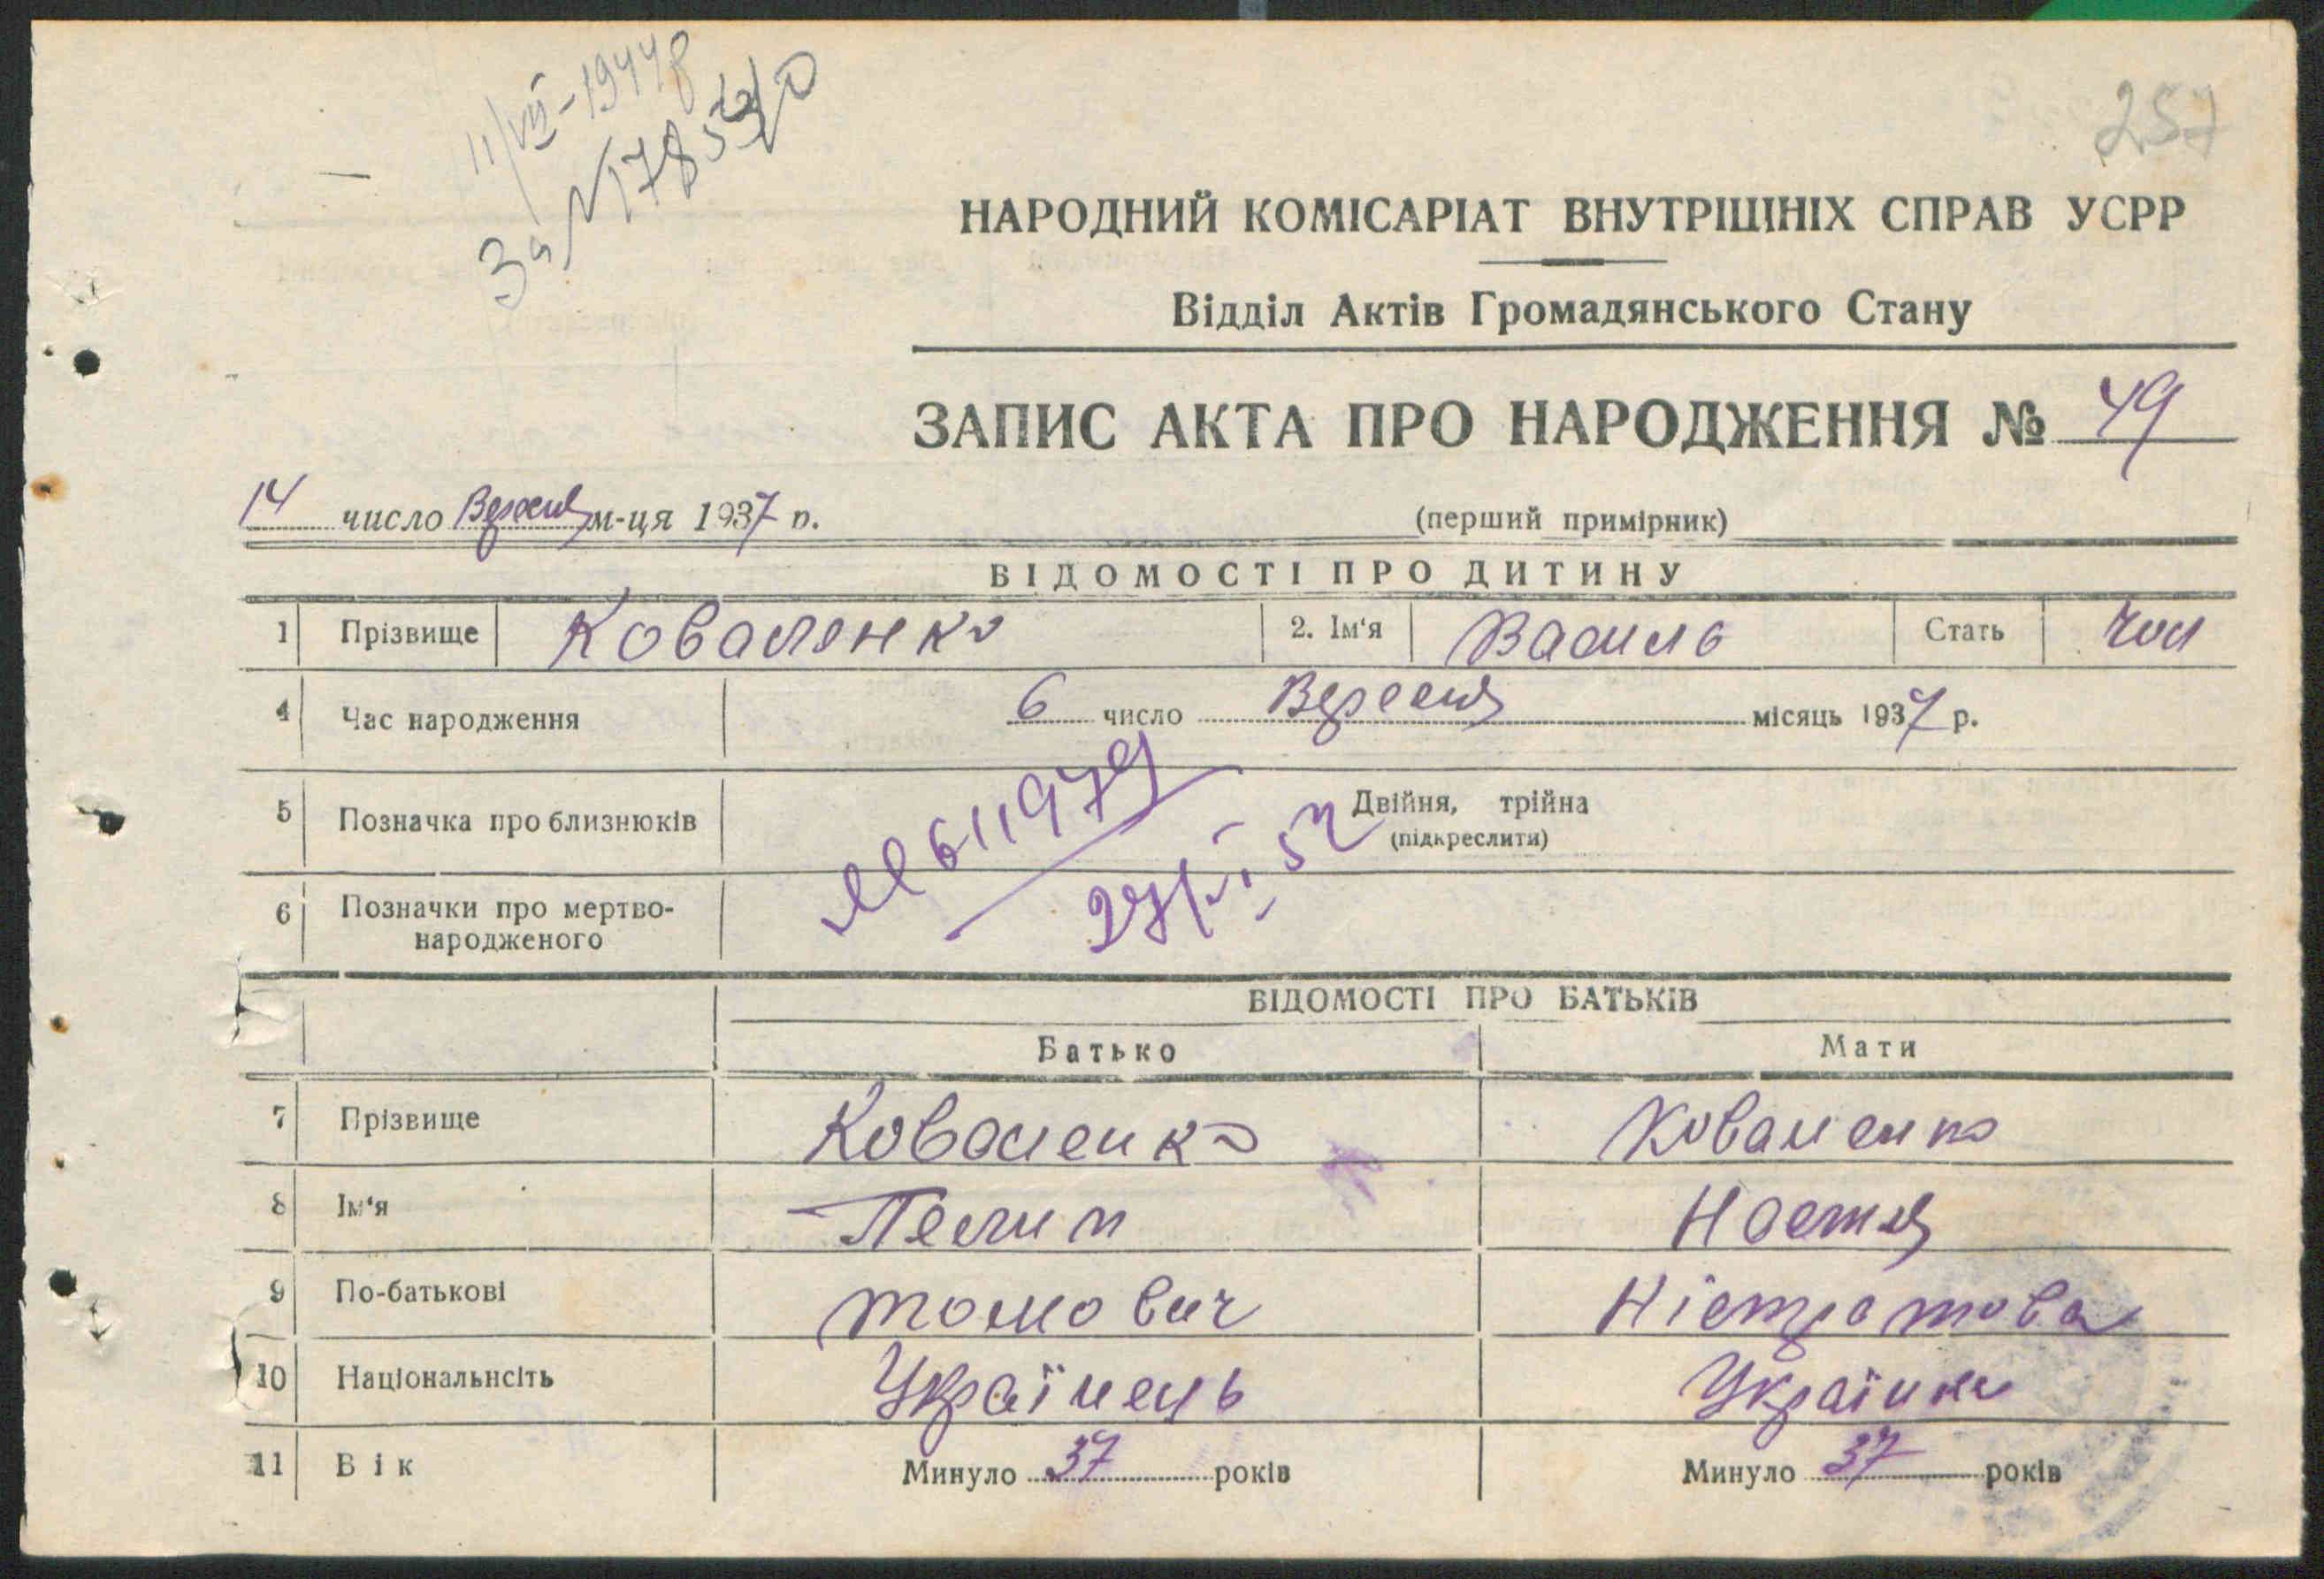 11/VII-1944р
257
НАРОДНИЙ КОМІСАРІАТ ВНУТРІШНІХ СПРАВ УСРР
Відділ Актів Громадянського Стану
ЗАПИС АКТА ПРО НАРОДЖЕННЯ № 49
14 число Вересня м-ця 1937 р.
(перший примірник)
ВІДОМОСТІ ПРО ДИТИНУ
1 Прізвище Коваленко 2. Ім'я Василь Стать чол
4 Час народження 6 число Вересня місяць 1937 р.
5 Позначка про близнюків Двійня, трійна
(підкреслити)
6 Позначки про мертво-
народженого
ВІДОМОСТІ ПРО БАТЬКІВ
Батько Мати
7 Прізвище Коваленко Коваленко
8 Ім'я Пелип Настя
9 По-батькові Томович Ністратова
10 Національнсіть Українець Українка
11 Вік Минуло 37 років Минуло 37 років